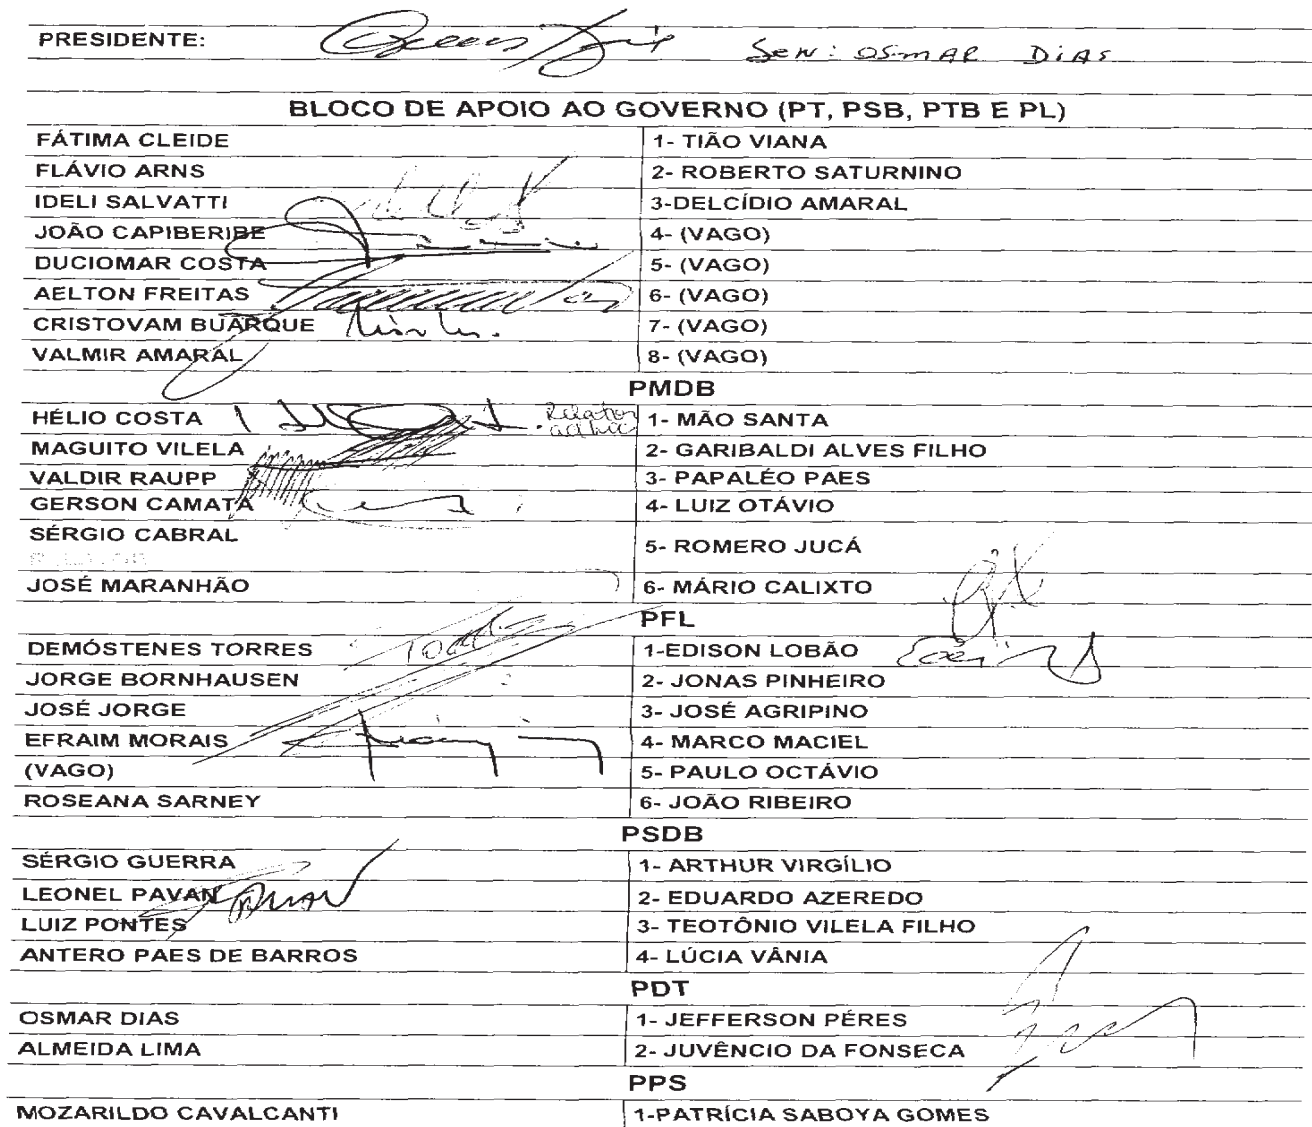 PRESIDENTE: SeN: OSmAR DiAS
BLOCO DE APOIO AO GOVERNO (PT, PSB, PTB E PL)
FÁTIMA CLEIDE 1- TIÃO VIANA
FLÁVIO ARNS 2- ROBERTO SATURNINO
IDELI SALVATTI 3-DELCÍDIO AMARAL
JOÃO CAPIBERIBE 4- (VAGO)
DUCIOMAR COSTA 5- (VAGO)
AELTON FREITAS 6- (VAGO)
CRISTOVAM BUARQUE 7- (VAGO)
VALMIR AMARAL 8- (VAGO)
PMDB
HÉLIO COSTA Relator ad hoc 1- MÃO SANTA
MAGUITO VILELA 2- GARIBALDI ALVES FILHO
VALDIR RAUPP 3- PAPALÉO PAES
GERSON CAMATA 4- LUIZ OTÁVIO
SÉRGIO CABRAL 5- ROMERO JUCÁ
JOSÉ MARANHÃO 6- MÁRIO CALIXTO
PFL
DEMÓSTENES TORRES 1-EDISON LOBÃO
JORGE BORNHAUSEN 2- JONAS PINHEIRO
JOSÉ JORGE 3- JOSÉ AGRIPINO
EFRAIM MORAIS 4- MARCO MACIEL
(VAGO) 5- PAULO OCTÁVIO
ROSEANA SARNEY 6- JOÃO RIBEIRO
PSDB
SÉRGIO GUERRA 1- ARTHUR VIRGÍLIO
LEONEL PAVAN 2- EDUARDO AZEREDO
LUIZ PONTES 3- TEOTÔNIO VILELA FILHO
ANTERO PAES DE BARROS 4- LÚCIA VÂNIA
PDT
OSMAR DIAS 1- JEFFERSON PÉRES
ALMEIDA LIMA 2- JUVÊNCIO DA FONSECA
PPS
MOZARILDO CAVALCANTI 1-PATRÍCIA SABOYA GOMES